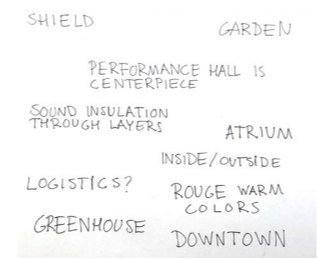 SHIELD
GARDEN
PERFORMANCE HALL IS
CENTERPIECE
SOUND INSULATION
THROUGH LAYERS
ATRIUM
INSIDE/OUTSIDE
LOGISTICS?
ROUGE WARM
COLORS
GREENHOUSE
DOWNTOWN